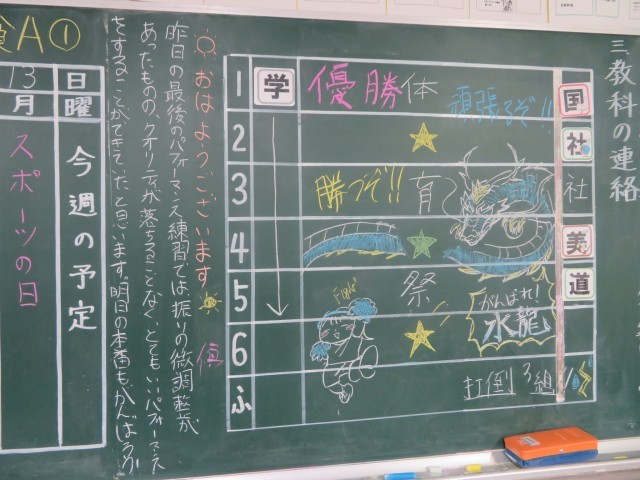 三、教科の連絡
国
社
社
美
道
頑張るぞ!!
優勝
体
育
祭
勝つぞ!!
がんばれ!
水龍
打倒3組!!
学
1
2
3
4
5
6
ふ
おはようございます
昨日の最後のパフォーマンス練習では、振りの微調整が
あったものの、クオリティが落ちることなく、とてもいいパフォーマンス
をすることができていたと思います。明日の本番もがんばろう
A①
日曜 今週の予定
13月 スポーツの日